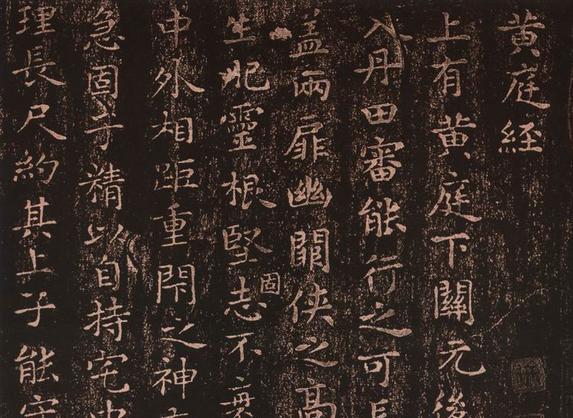 黄庭経
上有黄庭下關元後
入丹田審能行之可長
盖兩扉幽闕俠之高
生肥靈根堅固志不衰
中外相距重閇之神
急固子精以自持宅
理長尺約其上子能守